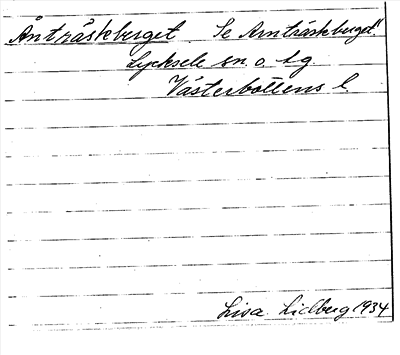 Ånträskberget. Se Arnträskberget."
Lycksele sn. o. t.g.
Västerbottens l.
Lisa Lidberg 1934